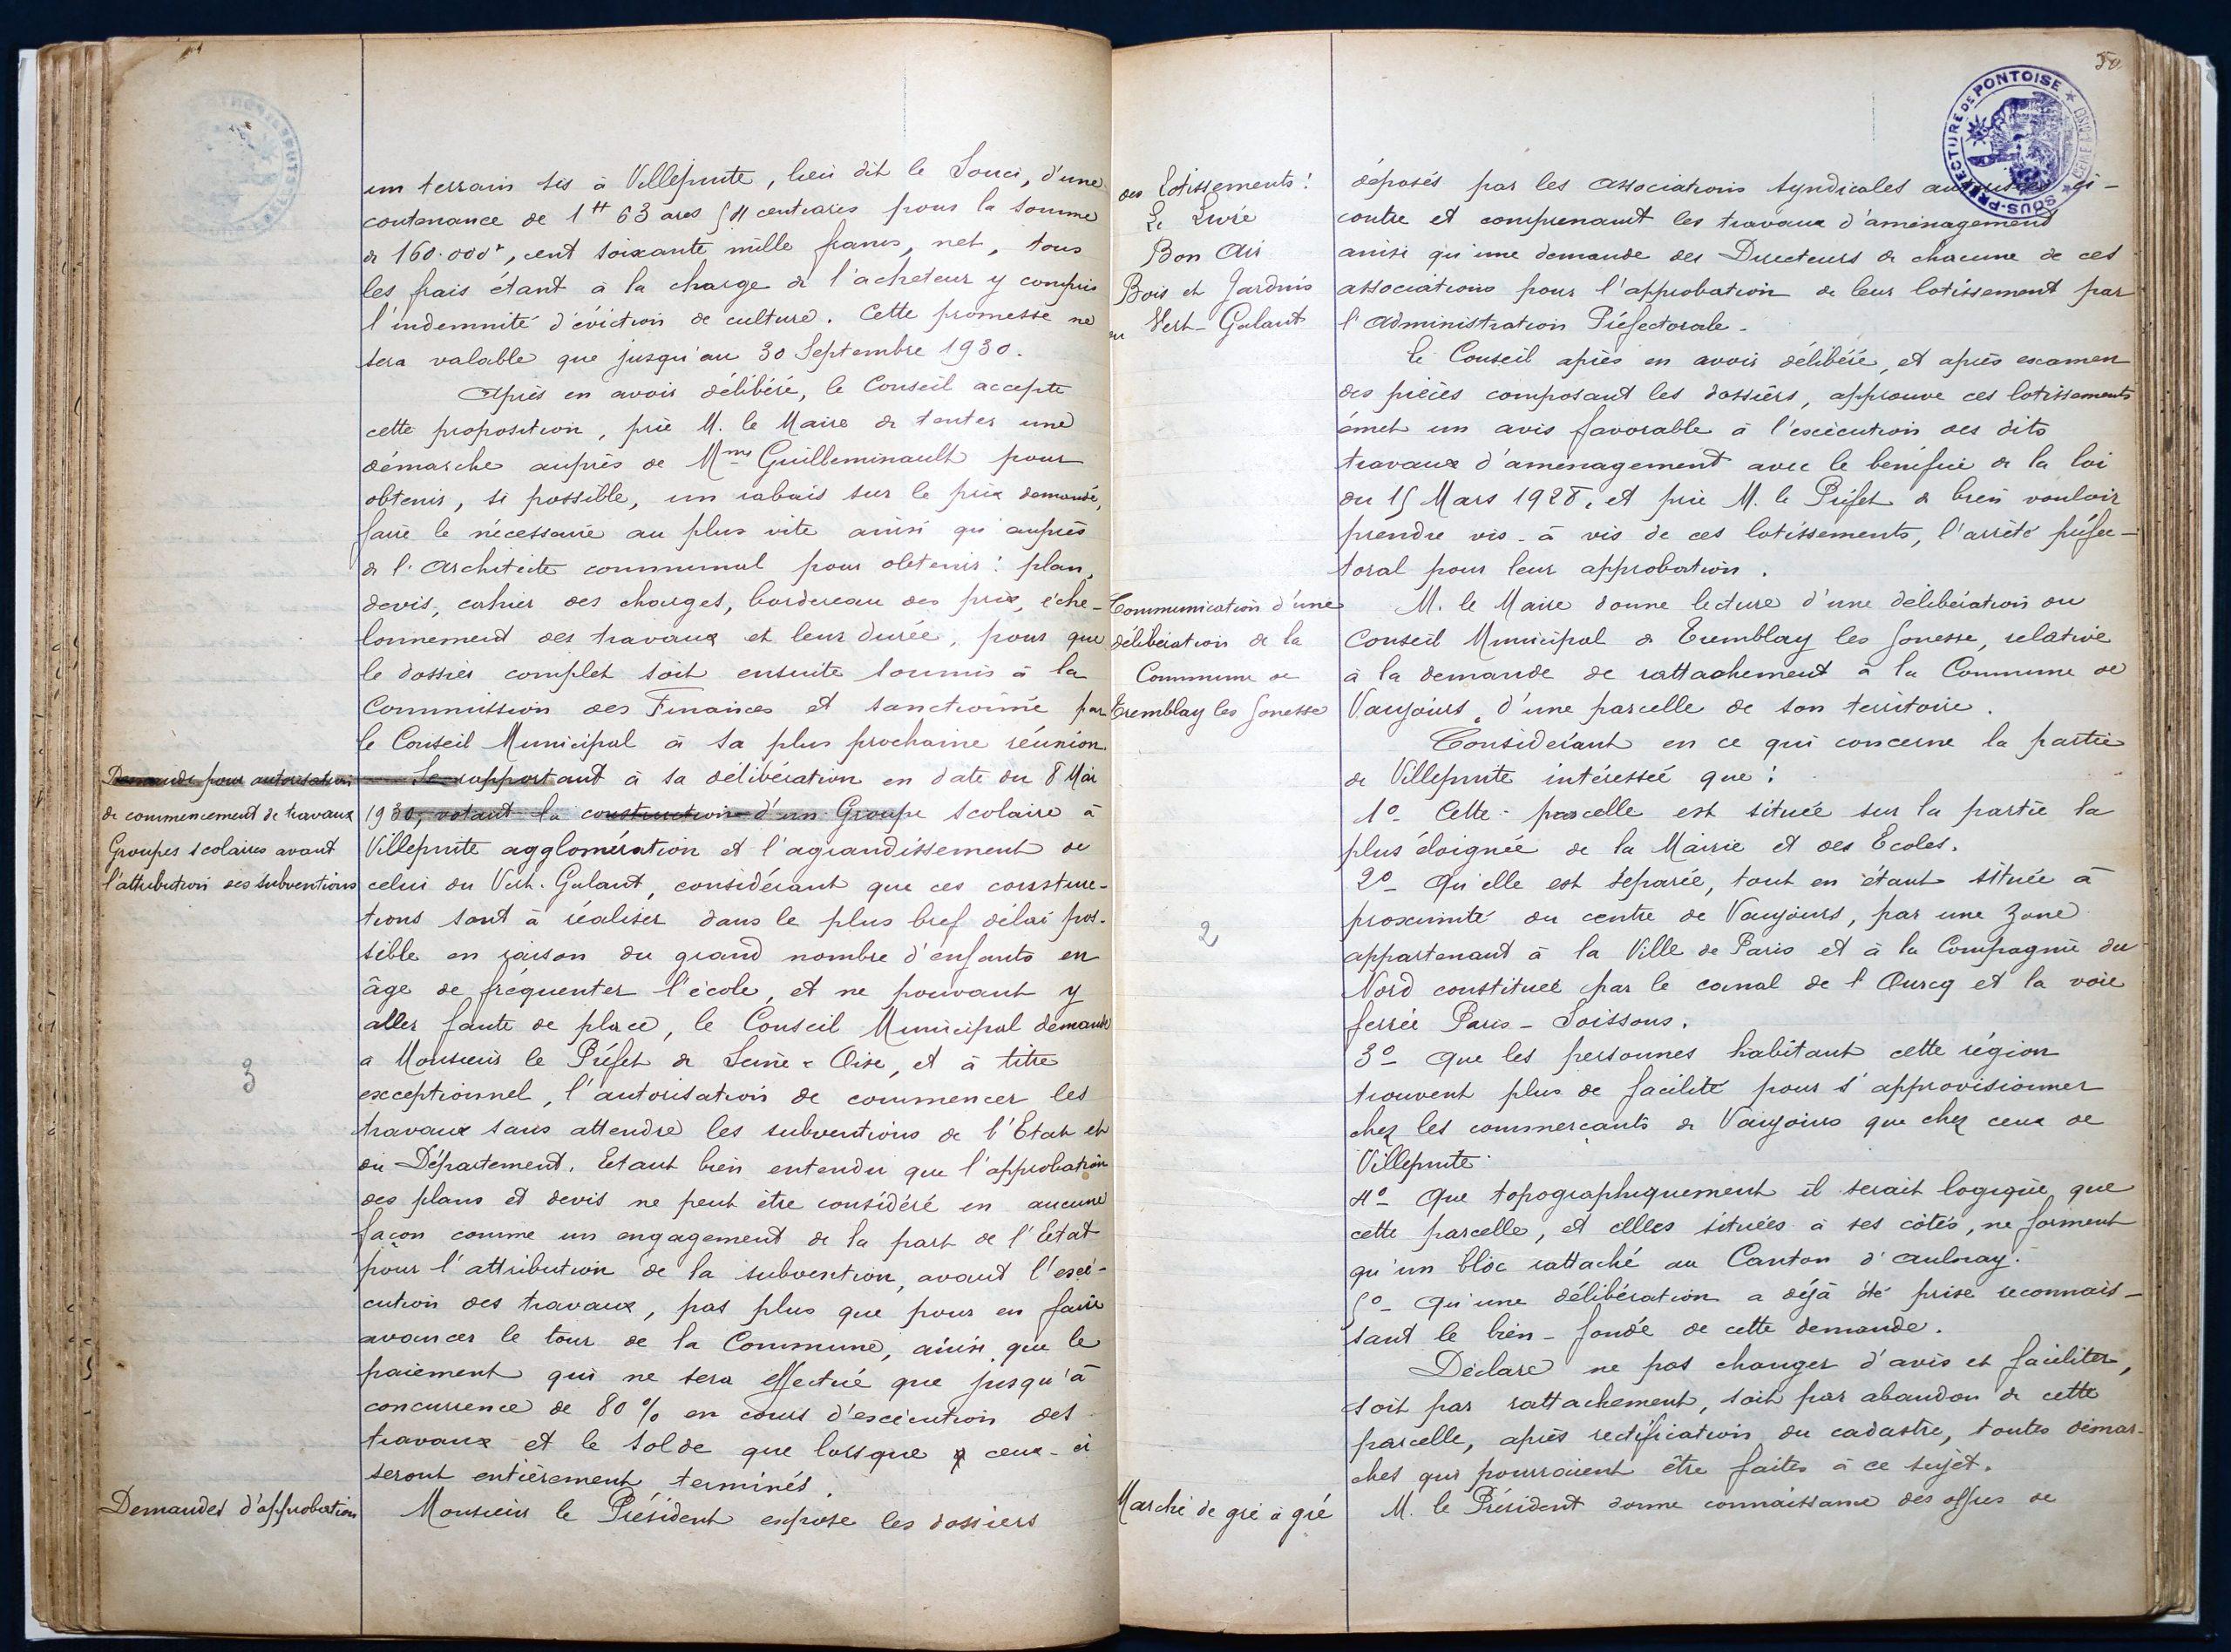 un terrain sis à Villepinte, lieu dit le Souci, d'une
contenance de 1H 63 ares 54 centiares pour la somme
de 160.000f, cent soixante mille francs, net, tous
les frais étant à la charge de l'acheteur y compris
l'indemnité d'éviction de culture. Cette promesse ne
sera valable que jusqu'au 30 Septembre 1930.
Après en avoir délibéré, le Conseil accepte
cette proposition, prie M. le Maire de tenter une
démarche auprès de Mme Guilleminault pour
obtenir, si possible, un rabais sur le prix demandé,
faire le nécessaire au plus vite ainsi qu'auprès
de l'Architecte communal pour obtenir : plan,
devis, cahier des charges, bordereau des prix, éche-
lonnement des travaux et leur durée, pour que
le dossier complet soit ensuite soumis à la
Commission des Finances et sanctionné par
le Conseil Municipal à sa plus prochaine réunion.
Demande pour autorisation
de commencement de travaux
Groupes scolaires avant
l'attribution des subventions
Se rapportant à sa délibération en date du 8 Mai
1930, votant la construction d'un Groupe scolaire à
Villepinte agglomération et l'agrandissement de
celui du Vert-Galant, considérant que ces construc-
tions sont à réaliser dans le plus bref délai pos-
sible en raison du grand nombre d'enfants en
âge de fréquenter l'école, et ne pouvant y
aller faute de place, le Conseil Municipal demande
3
à Monsieur le Préfet de Seine & Oise, et à titre
exceptionnel, l'autorisation de commencer les
travaux sans attendre les subventions de l'Etat et
du Département. Etant bien entendu que l'approbation
des plans et devis ne peut être considéré en aucune
façon comme un engagement de la part de l'Etat
pour l'attribution de la subvention, avant l'exé-
cution des travaux, pas plus que pour en faire
avancer le tour de la Commune, ainsi que le
paiement qui ne sera effectué que jusqu'à
concurrence de 80 % en cours d'exécution des
travaux et le solde que lorsque ceux-ci
seront entièrement terminés.
Demandes d'approbation
Monsieur le Président expose les dossiers
50
SOUS-PRÉFECTURE DE PONTOISE
des lotissements :
Le Livré
Bon Air
Bois et Jardins
au Vert-Galant
déposés par les Associations Syndicales ci-
contre et comprenant les travaux d'aménagement
ainsi qu'une demande des Directeurs de chacune de ces
associations pour l'approbation de leur lotissement par
l'Administration Préfectorale.
Le Conseil après en avoir délibéré, et après examen
des pièces composant les dossiers, approuve ces lotissements
émet un avis favorable à l'exécution des dits
travaux d'aménagement avec le bénéfice de la loi
du 15 Mars 1928, et prie M. le Préfet de bien vouloir
prendre vis-à vis de ces lotissements, l'arrêté préfec-
toral pour leur approbation.
Communication d'une
délibération de la
Commune de
Tremblay les Gonesse
M. le Maire donne lecture d'une délibération du
Conseil Municipal de Tremblay les Gonesse, relative
à la demande de rattachement à la Commune de
Vaujours, d'une parcelle de son territoire.
Considérant en ce qui concerne la partie
de Villepinte intéressée que :
1º- Cette parcelle est située sur la partie la
plus éloignée de la Mairie et des Ecoles.
2º- Qu'elle est séparée, tout en étant située à
2
proximité du centre de Vaujours, par une zone
appartenant à la Ville de Paris et à la Compagnie du
Nord constituée par le canal de l'Ourcq et la voie
ferrée Paris-Soissons.
3º- Que les personnes habitant cette région
trouvent plus de facilité pour s'approvisionner
chez les commerçants de Vaujours que chez ceux de
Villepinte
4º- Que topographiquement il serait logique que
cette parcelle, et celles situées à ses côtés, ne forment
qu'un bloc rattaché au Canton d'Aulnay.
5º- Qu'une délibération a déjà été prise reconnais-
sant le bien-fondé de cette demande.
Déclare ne pas changer d'avis et faciliter,
soit par rattachement, soit par abandon de cette
parcelle, après rectification du cadastre, toutes démar-
ches qui pourraient être faites à ce sujet.
Marché de gré à gré
M. le Président donne connaissance des offres de